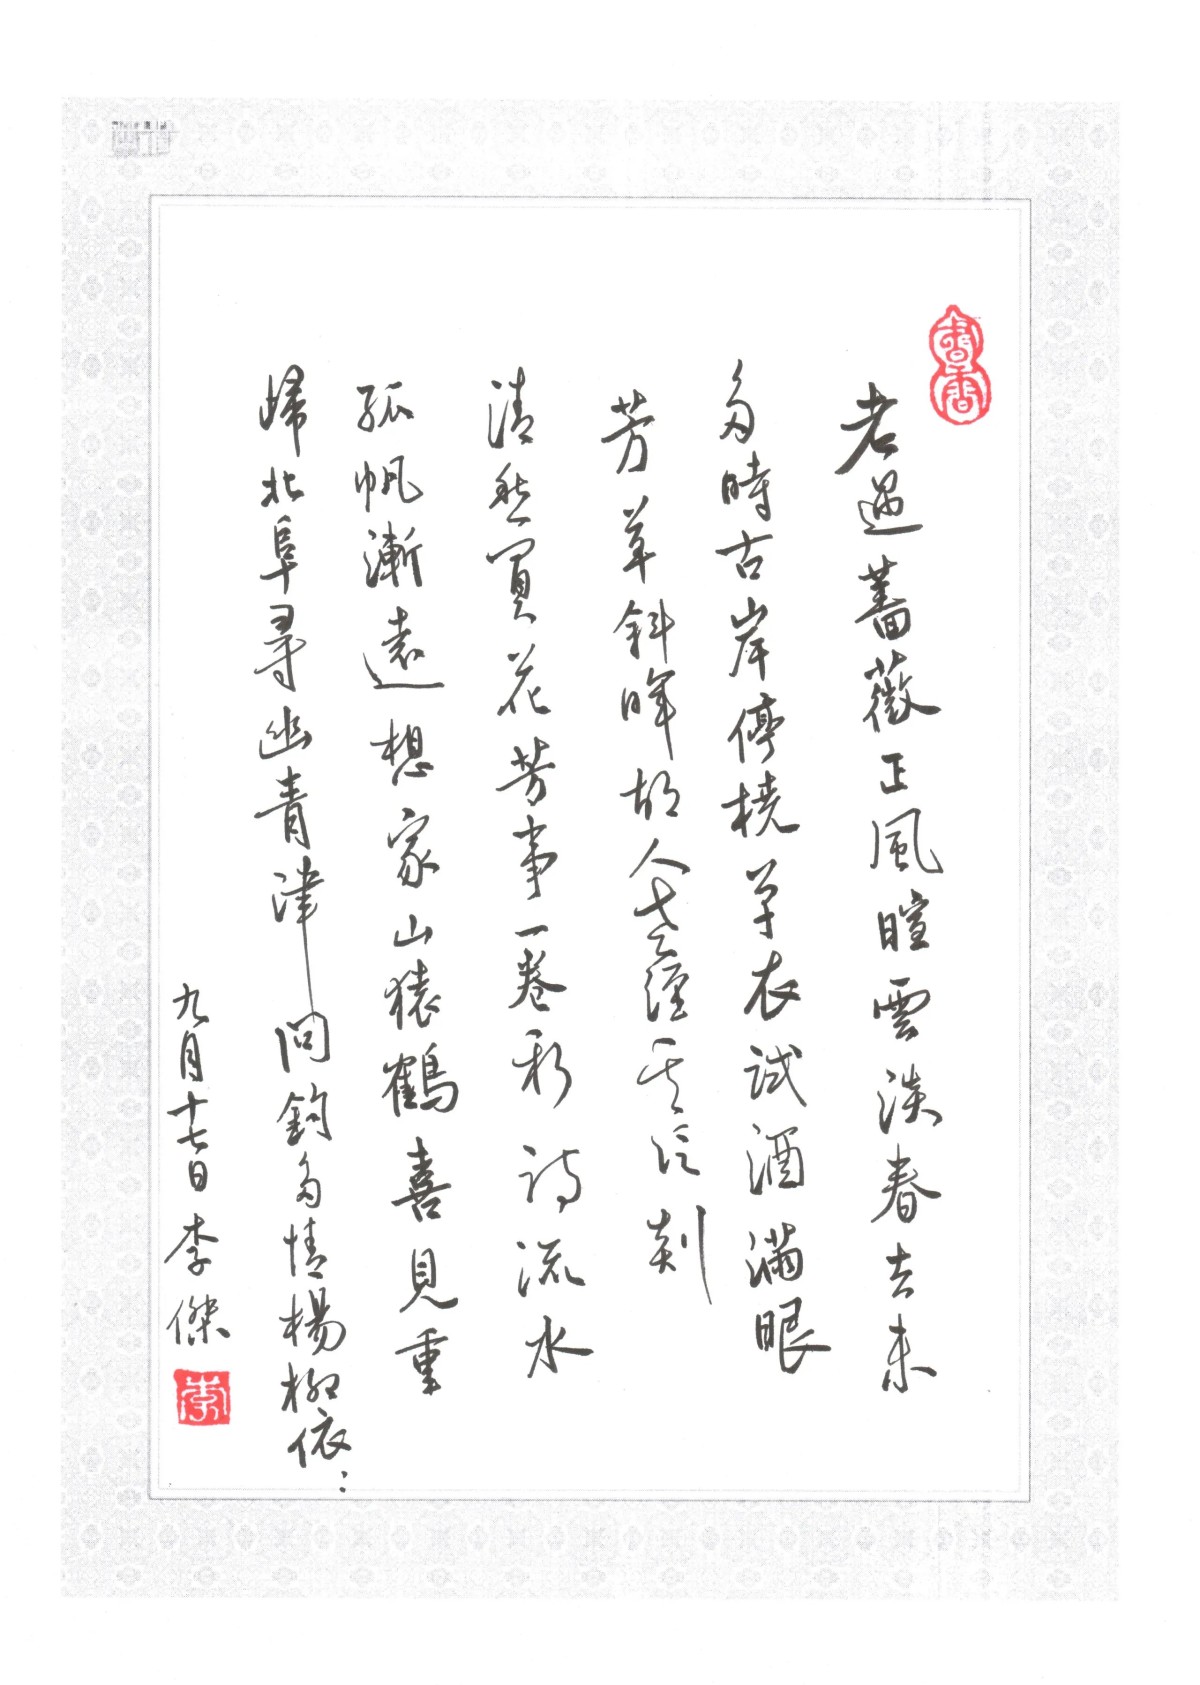 書香
老過薔薇正風暄雲淡春去未
多時古岸停橈單衣試酒滿眼
芳草斜暉故人老經其泛剡
清愁買花芳事一卷新詩流水
孤帆漸遠想家山猿鶴喜見重
歸北阜尋幽青津問釣多情楊柳依:
九月十七日李傑
李